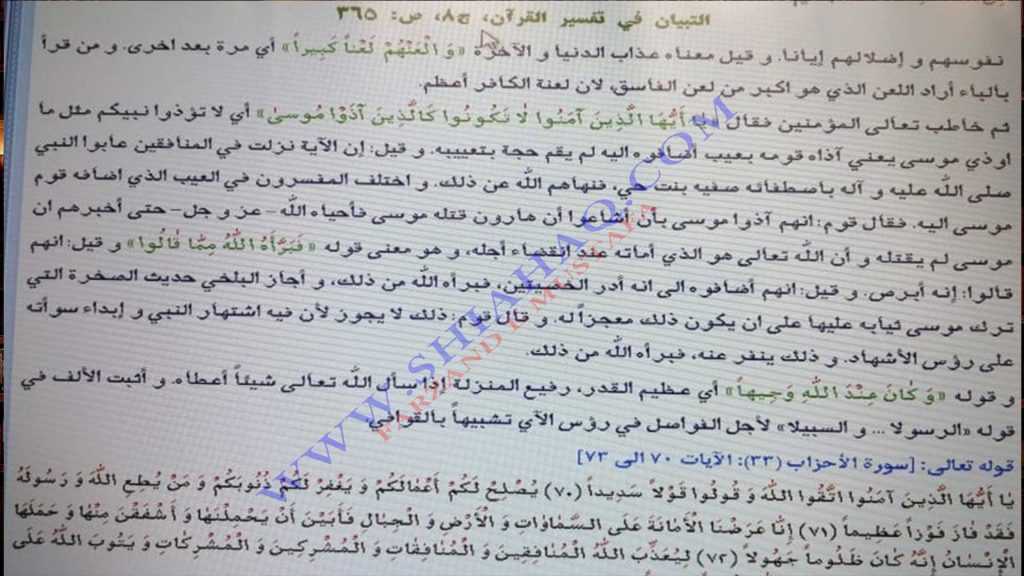 التبيان في تفسير القرآن، ج٨، ص: ٣٦٥
نفوسهم و إضلالهم إيانا. و قيل معناه عذاب الدنيا و الآخرة «وَ الْعَنْهُمْ لَعْناً كَبِيراً» أي مرة بعد اخرى. و من قرأ
بالباء أراد اللعن الذي هو اكبر من لعن الفاسق، لان لعنة الكافر أعظم.
ثم خاطب تعالى المؤمنين فقال «يا أَيُّهَا الَّذِينَ آمَنُوا لا تَكُونُوا كَالَّذِينَ آذَوْا مُوسى» أي لا تؤذوا نبيكم مثل ما
اوذي موسى يعني آذاه قومه بعيب اضافوه اليه لم يقم حجة بتعييبه. و قيل: إن الآية نزلت في المنافقين عابوا النبي
صلى الله عليه و آله باصطفائه صفيه بنت حي، فنهاهم الله عن ذلك. و اختلف المفسرون في العيب الذي اضافه قوم
موسى اليه. فقال قوم: انهم آذوا موسى بأن أشاعوا أن هارون قتله موسى فأحياه الله-عز و جل-حتى أخبرهم ان
موسى لم يقتله و أن الله تعالى هو الذي أماته عند انقضاء أجله، و هو معنى قوله «فَبَرَّأَهُ اللَّهُ مِمَّا قالُوا» و قيل: انهم
قالوا: إنه أبرص. و قيل: انهم أضافوه الى انه أدر الخصيتين، فبرأه الله من ذلك، و أجاز البلخي حديث الصخرة التي
ترك موسى ثيابه عليها على ان يكون ذلك معجزاً له. و قال قوم: ذلك لا يجوز لأن فيه اشتهار النبي و إبداء سوأته
على رؤس الأشهاد. و ذلك ينفر عنه، فبرأه الله من ذلك.
و قوله «وَ كانَ عِنْدَ اللَّهِ وَجِيهاً» أي عظيم القدر، رفيع المنزلة إذا سأل الله تعالى شيئاً أعطاه. و أثبت الألف في
قوله «الرسولا ... و السبيلا» لأجل الفواصل في رؤس الآي تشبيهاً بالقوافي
قوله تعالى: [سورة الأحزاب (٣٣): الآيات ٧٠ الى ٧٣]
يا أَيُّهَا الَّذِينَ آمَنُوا اتَّقُوا اللَّهَ وَ قُولُوا قَوْلاً سَدِيداً (٧٠) يُصْلِحْ لَكُمْ أَعْمالَكُمْ وَ يَغْفِرْ لَكُمْ ذُنُوبَكُمْ وَ مَنْ يُطِعِ اللَّهَ وَ رَسُولَهُ
فَقَدْ فازَ فَوْزاً عَظِيماً (٧١) إِنَّا عَرَضْنَا الْأَمانَةَ عَلَى السَّماواتِ وَ الْأَرْضِ وَ الْجِبالِ فَأَبَيْنَ أَنْ يَحْمِلْنَها وَ أَشْفَقْنَ مِنْها وَ حَمَلَهَا
الْإِنْسانُ إِنَّهُ كانَ ظَلُوماً جَهُولاً (٧٢) لِيُعَذِّبَ اللَّهُ الْمُنافِقِينَ وَ الْمُنافِقاتِ وَ الْمُشْرِكِينَ وَ الْمُشْرِكاتِ وَ يَتُوبَ اللَّهُ عَلَى
WWW.SHIAHAQ.COM
FARZAND E MUSTAFA